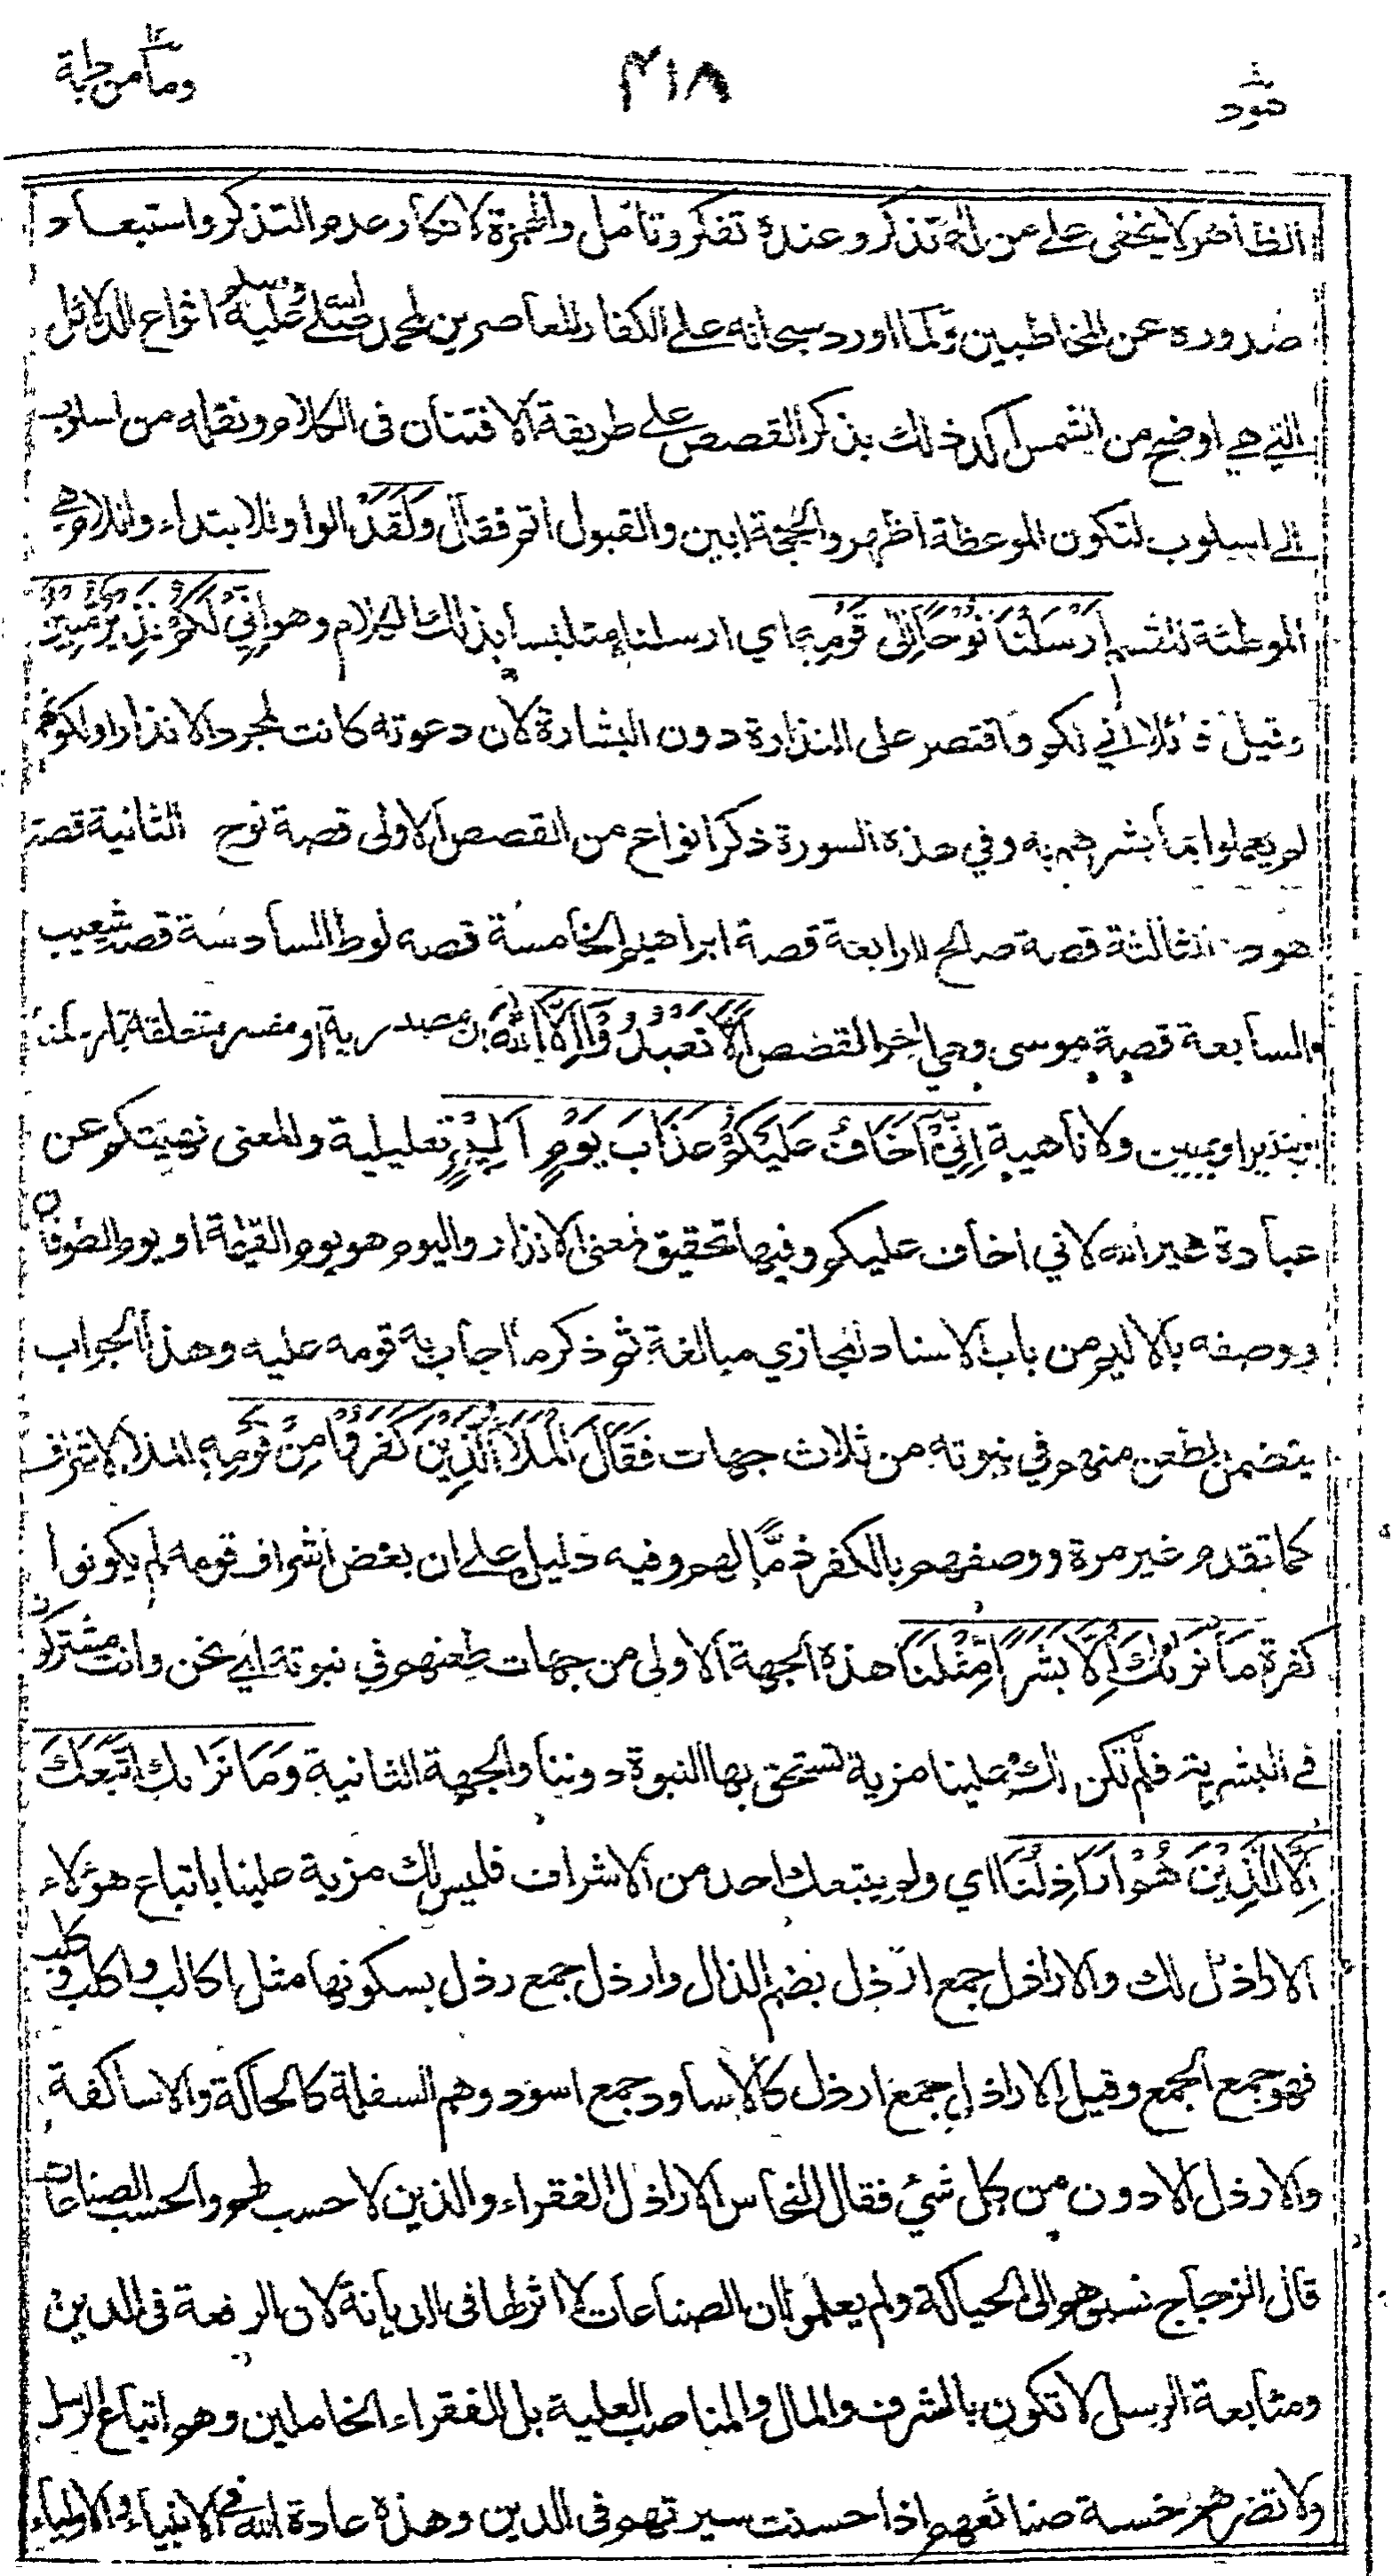 هود ٤١٨ ومامن دابة
الظاهر لا يخفى على من له تذكر وعنده تفكر وتأمل والهمزة لانكار عدم التذكر واستبعاد
صدوره عن المخاطبين ولما اورد سبحانه على الكفار المعاصرين لمحمد صلى الله عليه وسلم انواع الدلائل
التي هي اوضح من الشمس اكد ذلك بذكر القصص على طريقة الافتنان في الكلام ونقله من اسلوب
الى اسلوب لتكون الموعظة اظهر والحجة ابين والقبول اتم فقال وَلَقَدْ الواو للابتداء واللام هي
الموطئة للقسم اَرْسَلْنَا نُوْحًا اِلٰى قَوْمِهٖ اي ارسلناه متلبسا بذلك الكلام وهو اِنِّيْ لَكُمْ نَذِيْرٌ مُّبِيْنٌ
وقيل قائلا اني لكم واقتصر على النذارة دون البشارة لان دعوته كانت لمجرد الانذار او لكونهم
لم يعملوا بما بشرهم به وفي هذه السورة ذكر انواع من القصص الاولى قصة نوح الثانية قصة
هود الثالثة قصة صالح الرابعة قصة ابراهيم الخامسة قصه لوط السادسة قصه شعيب
والسابعة قصة موسى وهي اخر القصص اَلَّا تَعْبُدُوْا اِلَّا اللّٰهَ ان مصدرية او مفسر متعلقة بارسلنا
بنذير او مبين ولا ناهية اِنِّيْ اَخَافُ عَلَيْكُمْ عَذَابَ يَوْمٍ اَلِيْمٍ تعليلية والمعنى نهيتكم عن
عبادة غير الله لاني اخاف عليكم وفيها تحقيق لمعنى الانذار واليوم هو يوم القيمة او يوم الطوفان
ووصفه بالاليم من باب الاسناد المجازي مبالغة ثم ذكر ما اجاب به قومه عليه وهذا الجواب
يتضمن الطعن منهم في نبوته من ثلاث جهات فَقَالَ الْمَلَاُ الَّذِيْنَ كَفَرُوْا مِنْ قَوْمِهٖ الملأ الاشراف
كما تقدم غير مرة ووصفهم بالكفر ذمًّا لهم وفيه دليل على ان بعض اشراف قومه لم يكونوا
كفرة مَا نَرٰىكَ اِلَّا بَشَرًا مِثْلَنَا هذه الجهة الاولى من جهات طعنهم في نبوته اي نحن وانت مشتركون
في البشرية فلم تكن لك علينا مزية تستحق بها النبوة دوننا والجهة الثانية وَمَا نَرٰىكَ اتَّبَعَكَ
اِلَّا الَّذِيْنَ هُمْ اَرَاذِلُنَا اي ولم يتبعك احد من الاشراف فليس لك مزية علينا باتباع هؤلاء
الاراذل لك والاراذل جمع ارذل بضم الذال وارذل جمع رذل بسكونها مثل اكالب واكلب وكلب
فهو جمع الجمع وقيل الاراذل جمع ارذل كالاساود جمع اسود وهم السفلة كالحاكة والاساكفة
والارذل الادون من كل شئ فقال النحاس الاراذل الفقراء والذين لا حسب لهم والحسب الصناعات
قال الزجاج نسبوهم الى الحياكة ولم يعلموا ان الصناعات لا اثر لها في الديانة لان الرفعة في الدين
ومتابعة الرسل لا تكون بالشرف والمال والمناصب العلية بل للفقراء الخاملين وهم اتباع الرسل
ولا تضرهم خسة صنائعهم اذا حسنت سيرتهم في الدين وهذه عادة الله في الانبياء والاولياء